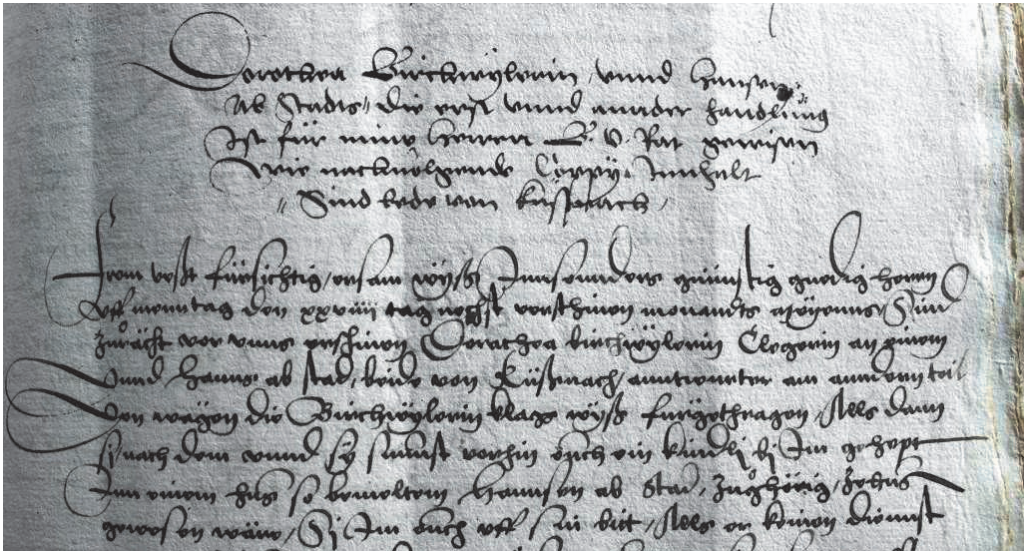 Dorothea Birchwylerin, unnd Hansen
Ab Stadts, die erst unnd annder handlung
Ist für mine Herren B. v. Rat gewisen
Wie nachvolgende Coppy, Innhalt
Sind bede von Küssnach,
From vest fürsichtig, ersam wyß Innsonnders günnstig gnedig herren
Uff monntag den xxviiii tag nechst verschinen monandts Meyenns, Sind
zu rächt vor unns erschinen Dorothea birchwylerin Clegerin an einem
Unnd Hanns ab stad, beide von Küßnach, anntwurter am anndern teil
Von wägen die Birchwylerin klags wyß fürgethragen, Alls dann
sy nach dem unnd sy sunnst vorhin ouch ein kindli bj Im gehept
Inn einem huß so bemeltem Hannsen ab Stad, zughörig, zehuß
gewesen wäre, Sj Im ouch uff sin bitt, Alls er keinen dienst